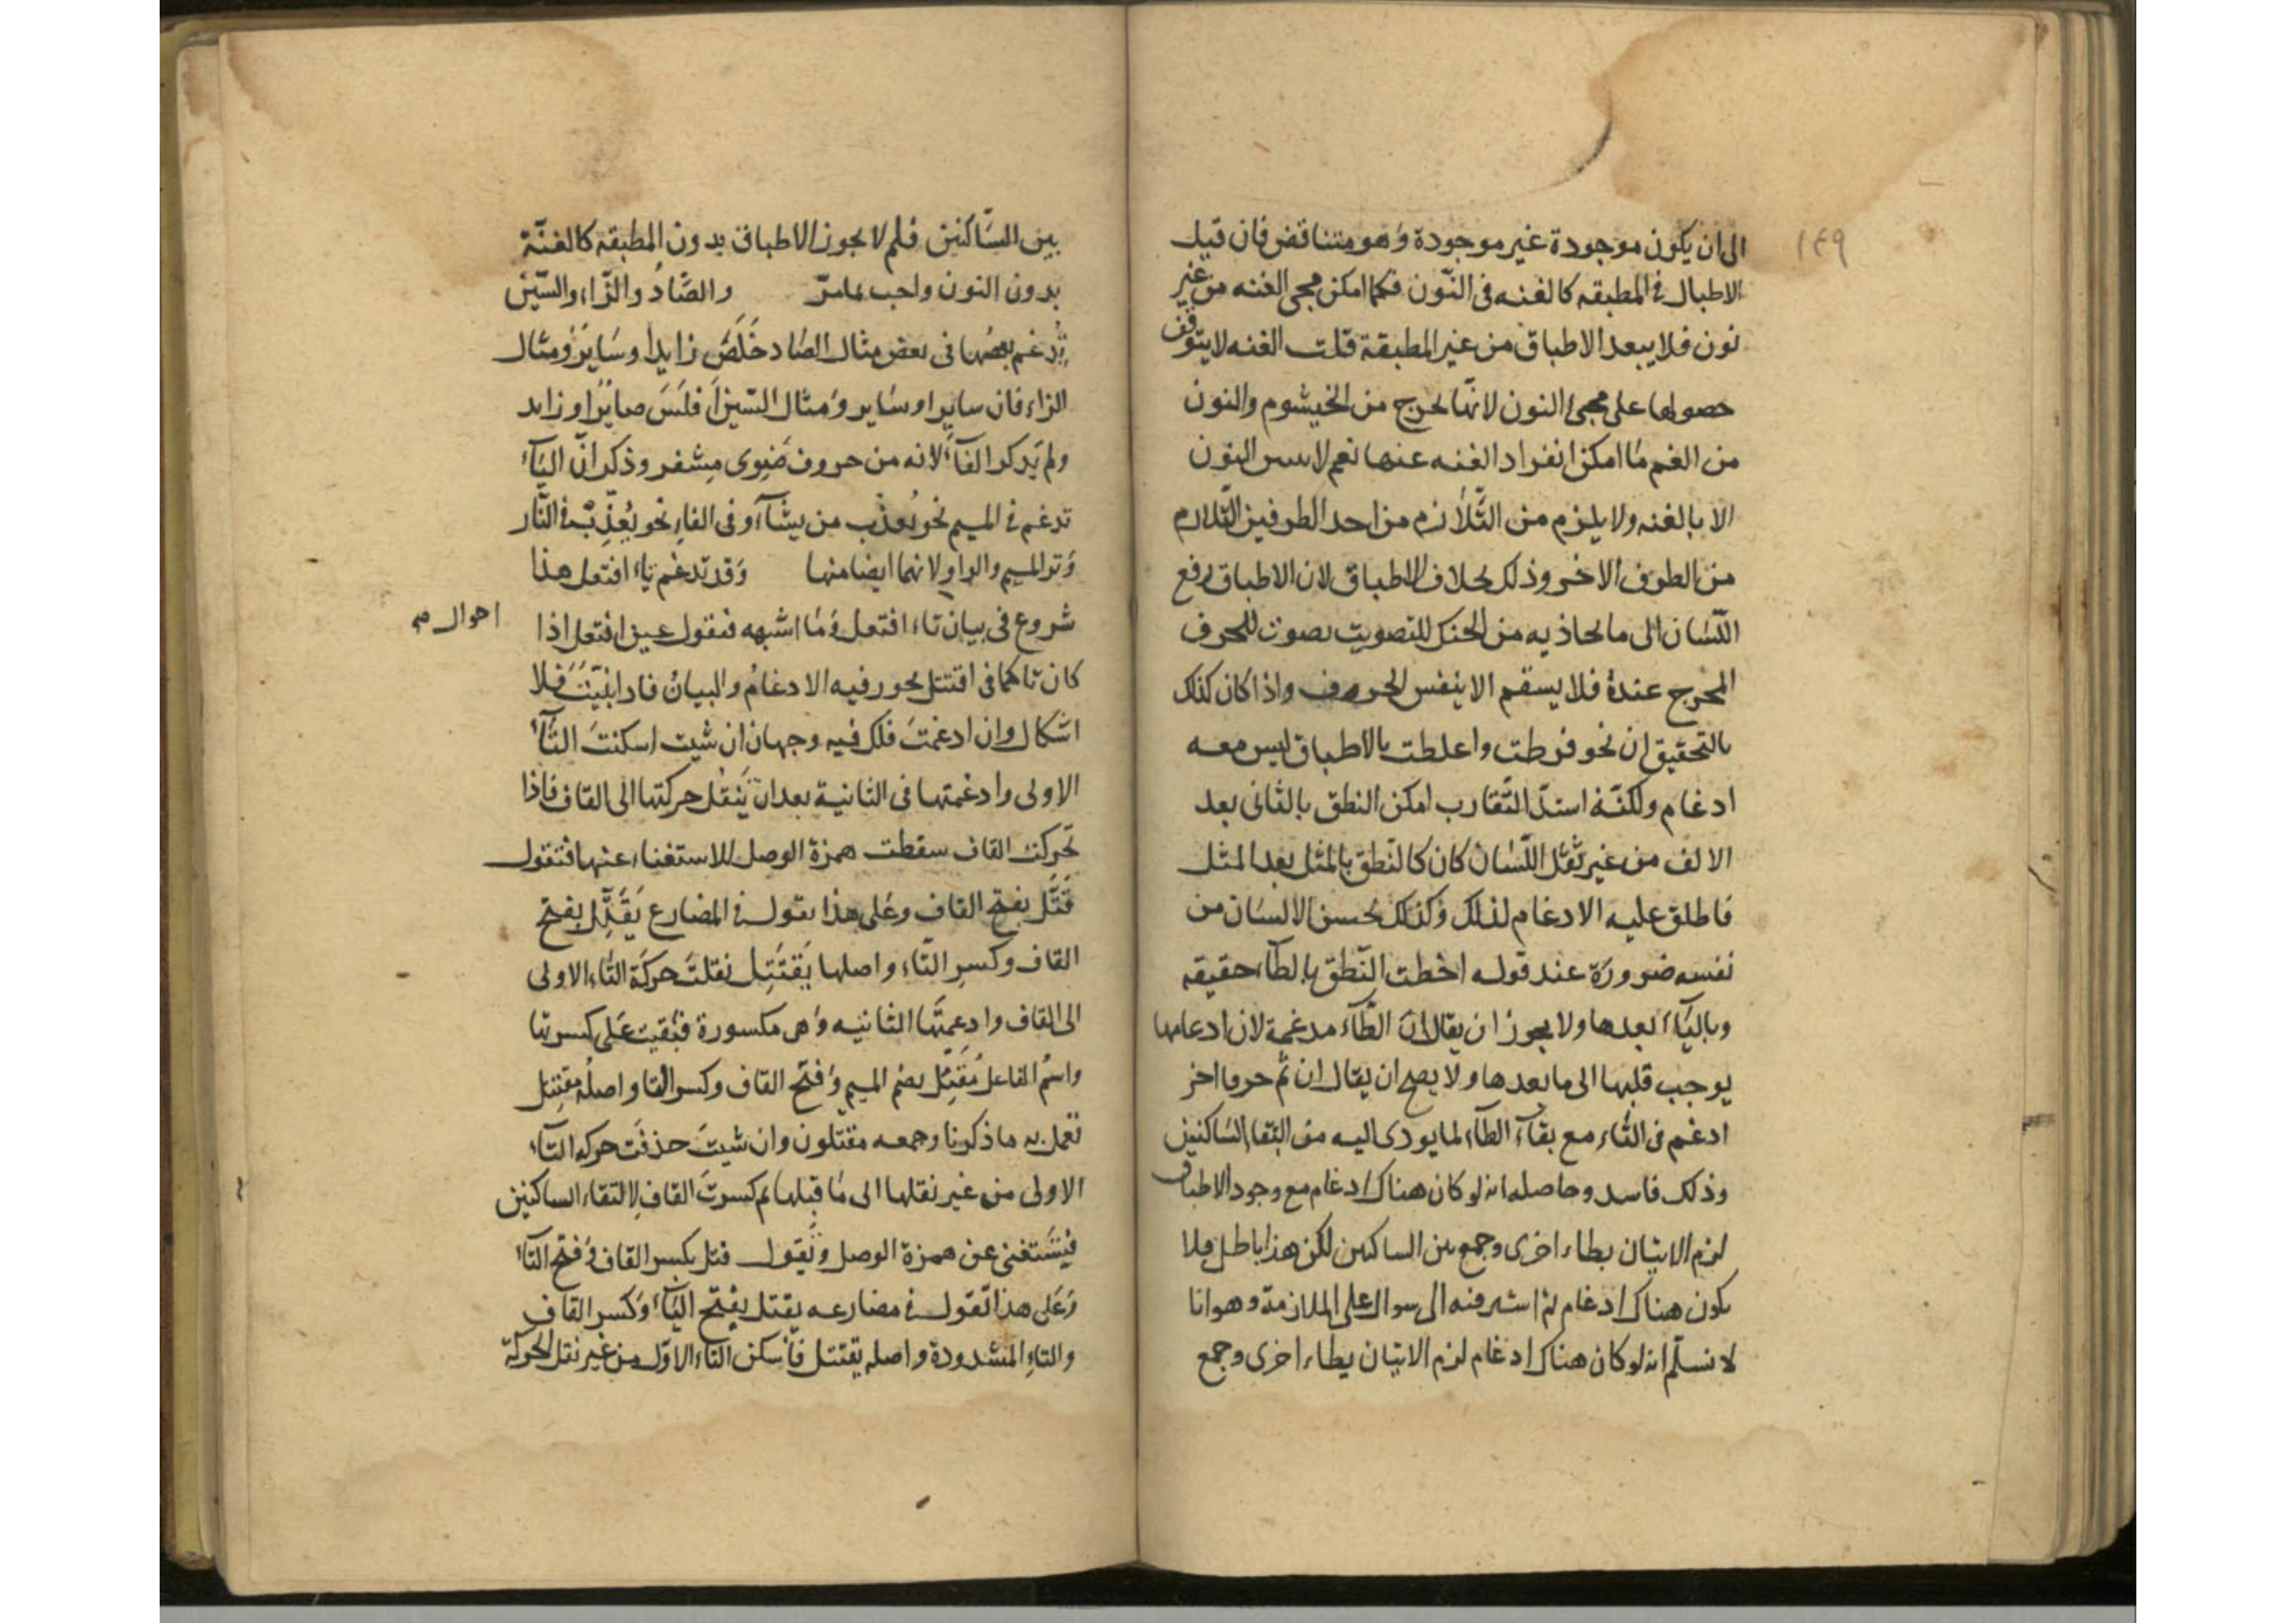 ١٤٩
الى ان يكون موجودة غير موجودة وهو متناقض فان قيل
الاطباق في المطبقه كالغنه فى النّون فكما امكن مجى الغنه من غير
نون فلا يبعد الاطباق من غير المطبقة قلت الغنه لا يتوقف
حصولها على مجئ النون لانها تخرج من الخيشوم والنون
من الفم ما امكن انفراد الغنه عنها نعم لا النون
الا بالغنه ولا يلزم من التّلازم من احد الطرفين التلازم
من الطرف الاخر وذلك بخلاف الاطباق لان الاطباق رفع
اللّسان الى ما يحاذيه من الحنك للتصويت بصوت للحرف
المخرج عنده فلا يستقم الا بنفس الحروف واذا كان كذلك
بالتحقيق ان نحو فرطت واغلطت بالاطباق ليس معه
ادغام ولكنّه اشتدّ التّقارب امكن النطق بالثانى بعد
الالف من غير ثقل اللّسان كان كالنّطق بالمثل بعد المثل
فاطلق عليه الادغام لذلك وكذلك يحسن الانسان من
نفسه ضرورة عند قوله احطت النّطق بالطاء حقيقه
وبالتاء بعدها ولا يجوز ان يقال ان الطّاء مدغمة لان ادغامها
يوجب قلبها الى ما بعدها ولا يصح ان يقال ان ثم حرفا اخر
ادغم فى التّاء مع بقاء الطاء لما يودى اليه من التقاء السّاكنين
وذلك فاسد وحاصله انه لو كان هناك ادغام مع وجود الاطباق
لزم الاتيان بطاء اخرى وجمع بين الساكنين لكن هذا باطل فلا
يكون هناك ادغام ثم اشير منه الى سوال على الملازمة وهو انا
لا نسلّم انه لو كان هناك ادغام لزم الاتيان بطاء اخرى وجمع
بين السّاكنين فلم لا يجوز الاطباق بدون المطبقه كالغنّة
بدون النون واجب بما مرّ والصّاد والزّاء والسّين
تدغم بعضها فى بعض مثال الصّاد خلص زايدا وساير ومثال
الزاء فان سايرا وساير ومثال السّين افلس صايرا وزايد
ولم يذكر الفاء لانه من حروف ضوى مشفر وذكر انّ الباء
تدغم فى الميم نحو يعذب من يشاء وفى الفاء نحو يعذب فى النّار
وتو الميم والواو لانهما ايضا منها وقد تدغم تاء افتعل هذا
شروع فى بيان تاء افتعل وما اشبهه فنقول عين افتعل اذا
احوال صح
كان تاء كما فى اقتتل يجوز فيه الادغام والبيان فاذا بيّنت فلا
اشكال وان ادغمت فلك فيه وجهان ان شيت اسكنت التّاء
الاولى وادغمتها فى الثانية بعد ان ينقل حركتها الى القاف فاذا
تحركت القاف سقطت همزة الوصل للاستغناء عنها فتقول
قتّل بفتح القاف وعلى هذا يقول فى المضارع يقتّل بفتح
القاف وكسر التّاء واصلها يقتتل نقلت حركة التّاء الاولى
الى القاف وادغمتها الثانيه وهى مكسورة فبقيت على كسرتها
واسم الفاعل مقتّل بضم الميم وفتح القاف وكسر التا واصله مقتتل
تعمل به ما ذكرنا وجمعه مقتلون وان شيت حذفت حركه التاء
الاولى من غير نقلها الى ما قبلها ثم كسرت القاف لالتقاء الساكنين
فيستغنى عن همزة الوصل ويقول قتل بكسر القاف وفتح التاء
وعلى هذا تقول فى مضارعه يقتل بفتح الياء وكسر القاف
والتاء المشدودة واصله يقتتل فاسكن التاء الاول من غير نقل الحركة